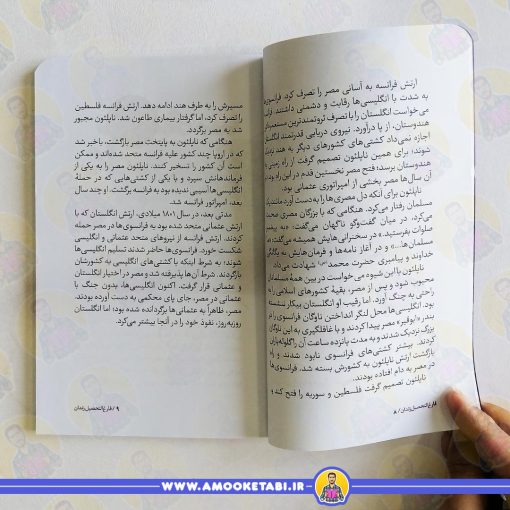 ارتش فرانسه به آسانی مصر را تصرف کرد. فرانسوی‌ها
به شدت با انگلیسی‌ها رقابت و دشمنی داشتند.
می‌خواست انگلستان را با تصرف ثروتمندترین
هندوستان، از پا درآورد. نیروی دریایی قدرتمند
اجازه نمی‌داد کشتی‌های کشورهای دیگر به هند
شوند؛ برای همین ناپلئون تصمیم گرفت از راه زمینی
هندوستان برسد؛ فتح مصر نخستین قدم در این راه بود
آن سال‌ها مصر بخشی از امپراتوری عثمانی بود.
ناپلئون برای آنکه دل مصری‌ها را به دست آورد، مانند یک
مسلمان رفتار می‌کرد. هنگامی که با بزرگان مصری
می‌کرد، در میان گفت‌وگو ناگهان می‌گفت:
صلوات بفرستید.» در سخنرانی‌هایش همیشه می‌گفت:
مسلمان‌ها...» و در آغاز نامه‌ها و فرمان‌هایش به یگانگی
خداوند و پیامبری حضرت محمد شهادت می‌داد.
ناپلئون با این شیوه می‌خواست در بین همهٔ مسلمانان
محبوب شود و پس از مصر، بقیهٔ کشورهای اسلامی را به
راحتی به چنگ آورد. اما رقیب او انگلستان بیکار ننشسته
بود. انگلیسی‌ها محل لنگر انداختن ناوگان فرانسوی را در
بندر «ابوقیر» مصر پیدا کردند و با غافلگیری به این ناوگان
بزرگ نزدیک شدند و به مدت پانزده ساعت آن را گلوله‌باران
کردند. بیشتر کشتی‌های فرانسوی نابود شدند و راه
بازگشت ارتش ناپلئون به کشورش بسته شد. فرانسوی‌ها
در مصر به دام افتاده بودند.
ناپلئون تصمیم گرفت فلسطین و سوریه را فتح کند و
۸ / فارغ‌التحصیل زندان
مسیرش را به طرف هند ادامه دهد. ارتش فرانسه فلسطین
را تصرف کرد، اما گرفتار بیماری طاعون شد. ناپلئون مجبور
شد به مصر برگردد.
هنگامی که ناپلئون به پایتخت مصر بازگشت، باخبر شد
که در اروپا چند کشور علیه فرانسه متحد شده‌اند و ممکن
است آن کشور را تسخیر کنند. ناپلئون مصر را به یکی از
فرمانده‌هانش سپرد و با یکی از کشتی‌هایی که در حملهٔ
انگلیسی‌ها آسیبی ندیده بود به فرانسه برگشت. او چند سال
بعد، امپراتور فرانسه شد.
مدتی بعد، در سال ۱۸۰۱ میلادی، ارتش انگلستان که با
ارتش عثمانی متحد شده بود به فرانسوی‌ها در مصر حمله
کردند. ارتش فرانسه از نیروهای متحد عثمانی و انگلیسی
شکست خورد. فرانسوی‌ها حاضر شدند تسلیم انگلیسی‌ها
شوند؛ به شرط اینکه با کشتی‌های انگلیسی به کشورشان
بازگردند. شرط آن‌ها پذیرفته شد و مصر در اختیار انگلستان
و عثمانی قرار گرفت. اکنون انگلیسی‌ها، بدون جنگ با
عثمانی در مصر، جای پای محکمی به دست آورده بودند.
مصر، ظاهراً به عثمانی‌ها برگردانده شده بود؛ اما انگلستان
روزبه‌روز، نفوذ خود را در آنجا بیشتر می‌کرد.
۹ / فارغ‌التحصیل زندان
WWW.AMOOKETABI.IR